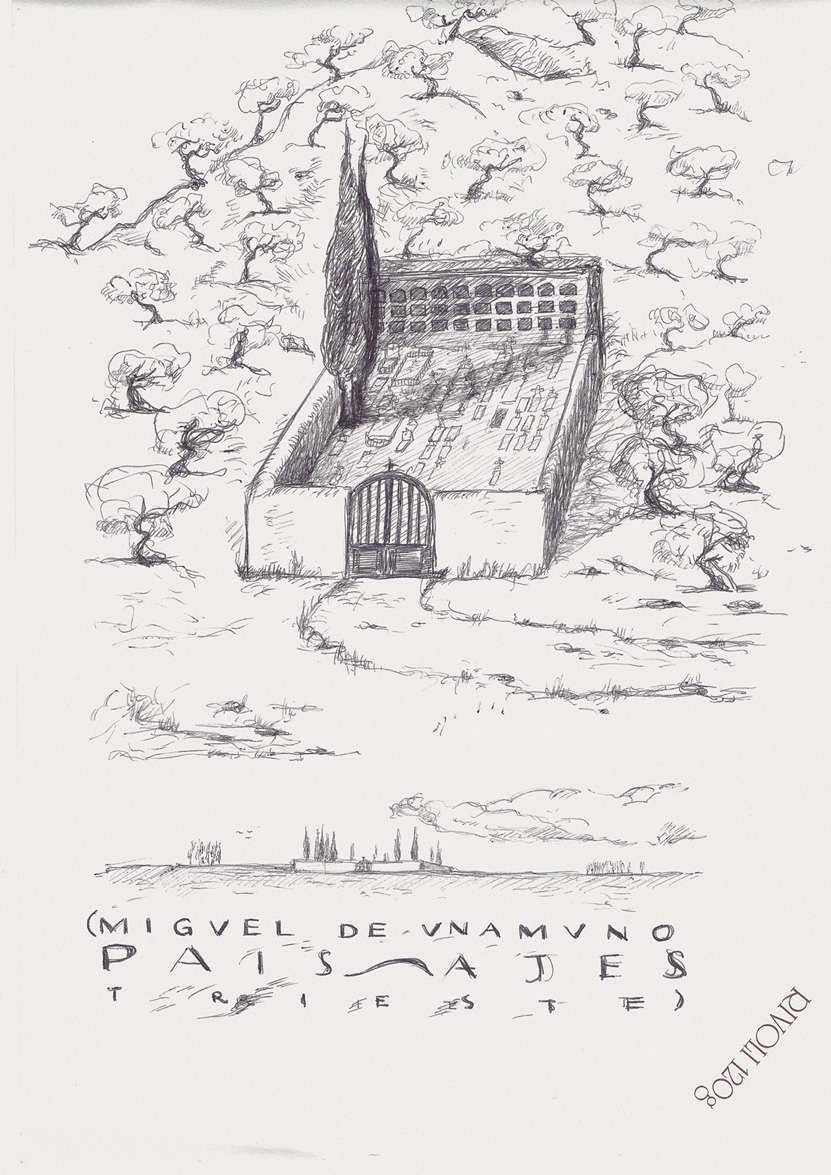 (MIGVEL DE VNAMVNO
PAISAJES
TRIESTE)
RIVOLI 120g